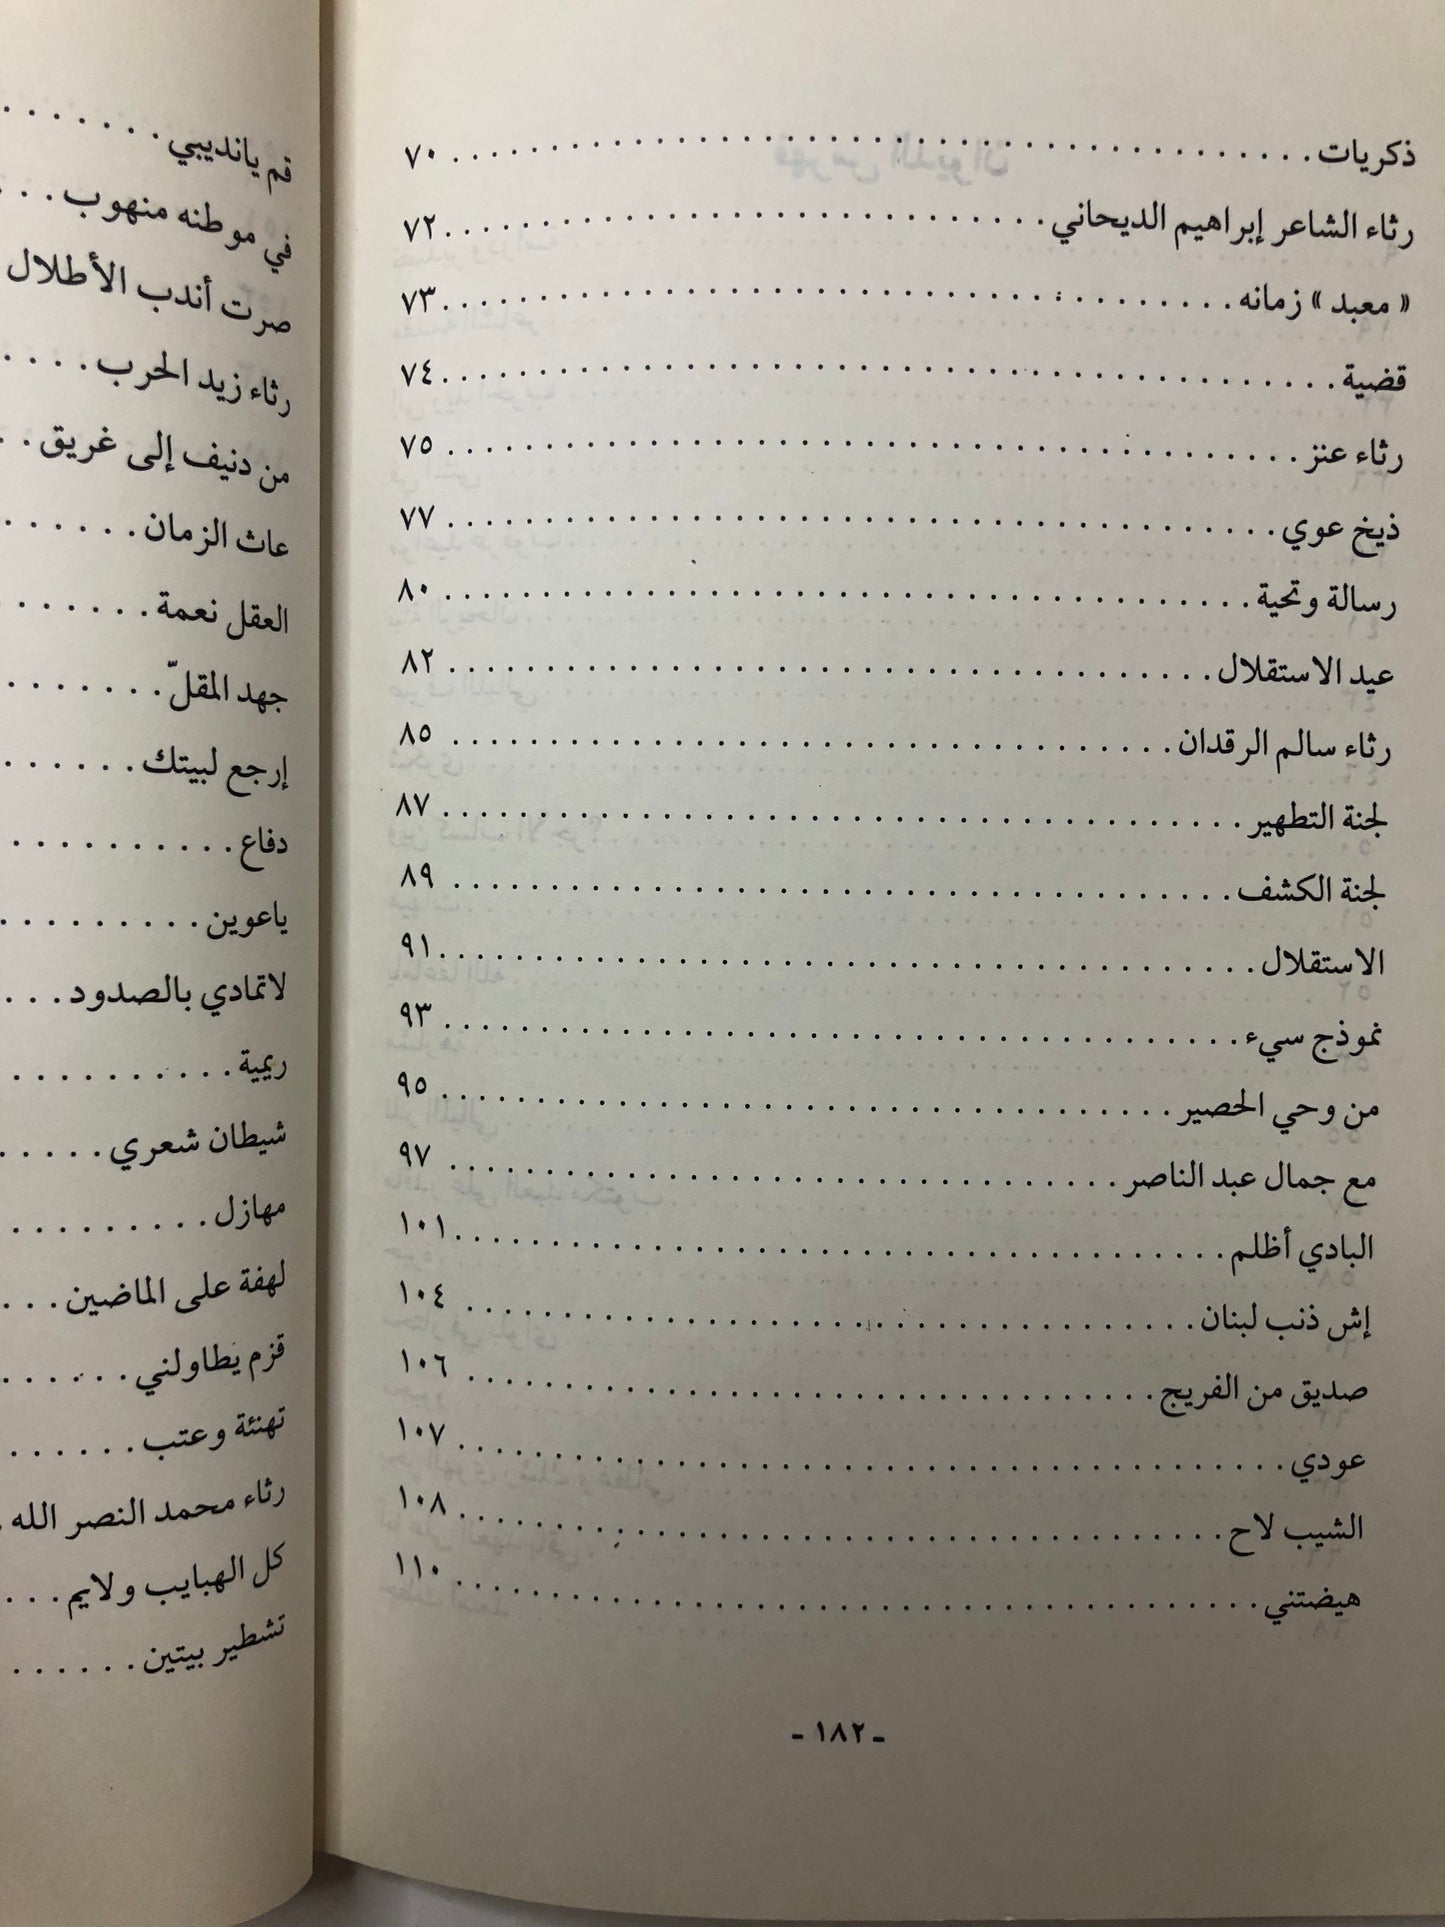 ذكريات ........ ٧٠
رثاء الشاعر إبراهيم الديحاني ........ ٧٢
« معبد » زمانه ........ ٧٣
قضية ........ ٧٤
رثاء عنز ........ ٧٥
ذيخ عوي ........ ٧٧
رسالة وتحية ........ ٨٠
عيد الاستقلال ........ ٨٢
رثاء سالم الرقدان ........ ٨٥
لجنة التطهير ........ ٨٧
لجنة الكشف ........ ٨٩
الاستقلال ........ ٩١
نموذج سيء ........ ٩٣
من وحي الحصير ........ ٩٥
مع جمال عبد الناصر ........ ٩٧
البادي أظلم ........ ١٠١
إش ذنب لبنان ........ ١٠٤
صديق من الفريج ........ ١٠٦
عودي ........ ١٠٧
الشيب لاح ........ ١٠٨
هيضتني ........ ١١٠
- ١٨٢ -
قم يانديبي ........
في موطنه منهوب ....
صرت أندب الأطلال
رثاء زيد الحرب .....
من دنيف إلى غريق ..
عاث الزمان ......
العقل نعمة .......
جهد المقلّ ........
إرجع لبيتك ......
دفاع ..........
ياعوين .........
لاتمادي بالصدود ....
ريمية ..........
شيطان شعري .....
مهازل .........
لهفة على الماضين ...
قزم يطاولني ......
تهنئة وعتب ......
رثاء محمد النصر الله .
كل الهبايب ولايم ....
تشطير بيتين ......